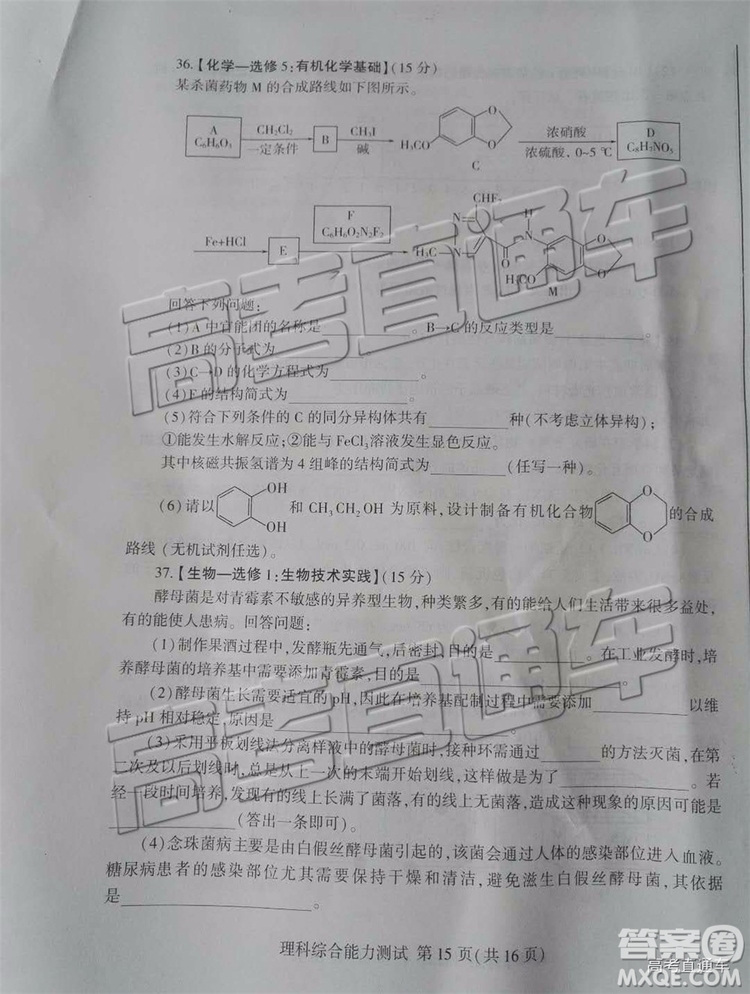 36.【化学—选修5:有机化学基础】(15分)
某杀菌药物M的合成路线如下图所示。
A C₆H₆O₃ CH₂Cl₂ 一定条件 B CH₃I 碱 H₃CO O O C 浓硝酸 浓硫酸、0~5 ℃ D C₈H₇NO₅
Fe+HCl E F C₆H₆O₂N₂F₂ CHF₂ N N H₃C O H N H₃CO O O M
回答下列问题:
(1)A中官能团的名称是________。B→C的反应类型是________。
(2)B的分子式为________
(3)C→D的化学方程式为________。
(4)E的结构简式为________。
(5)符合下列条件的C的同分异构体共有________种(不考虑立体异构);
①能发生水解反应;②能与FeCl₃溶液发生显色反应。
其中核磁共振氢谱为4组峰的结构简式为________(任写一种)。
(6)请以 OH OH 和CH₃CH₂OH为原料,设计制备有机化合物 O O 的合成
路线(无机试剂任选)。
37.【生物—选修1:生物技术实践】(15分)
酵母菌是对青霉素不敏感的异养型生物,种类繁多,有的能给人们生活带来很多益处,
有的能使人患病。回答问题:
(1)制作果酒过程中,发酵瓶先通气,后密封,目的是________。在工业发酵时,培
养酵母菌的培养基中需要添加青霉素,目的是________
(2)酵母菌生长需要适宜的pH,因此在培养基配制过程中需要添加________以维
持pH相对稳定,原因是________
(3)采用平板划线法分离样液中的酵母菌时,接种环需通过________的方法灭菌,在第
二次及以后划线时,总是从上一次的末端开始划线,这样做是为了________。若
经一段时间培养,发现有的线上长满了菌落,有的线上无菌落,造成这种现象的原因可能是
________(答出一条即可)。
(4)念珠菌病主要是由白假丝酵母菌引起的,该菌会通过人体的感染部位进入血液。
糖尿病患者的感染部位尤其需要保持干燥和清洁,避免滋生白假丝酵母菌,其依据
是________。
理科综合能力测试 第15页(共16页)
高考直通车
高考直通车
答案圈
高考直通车
MXQE.COM